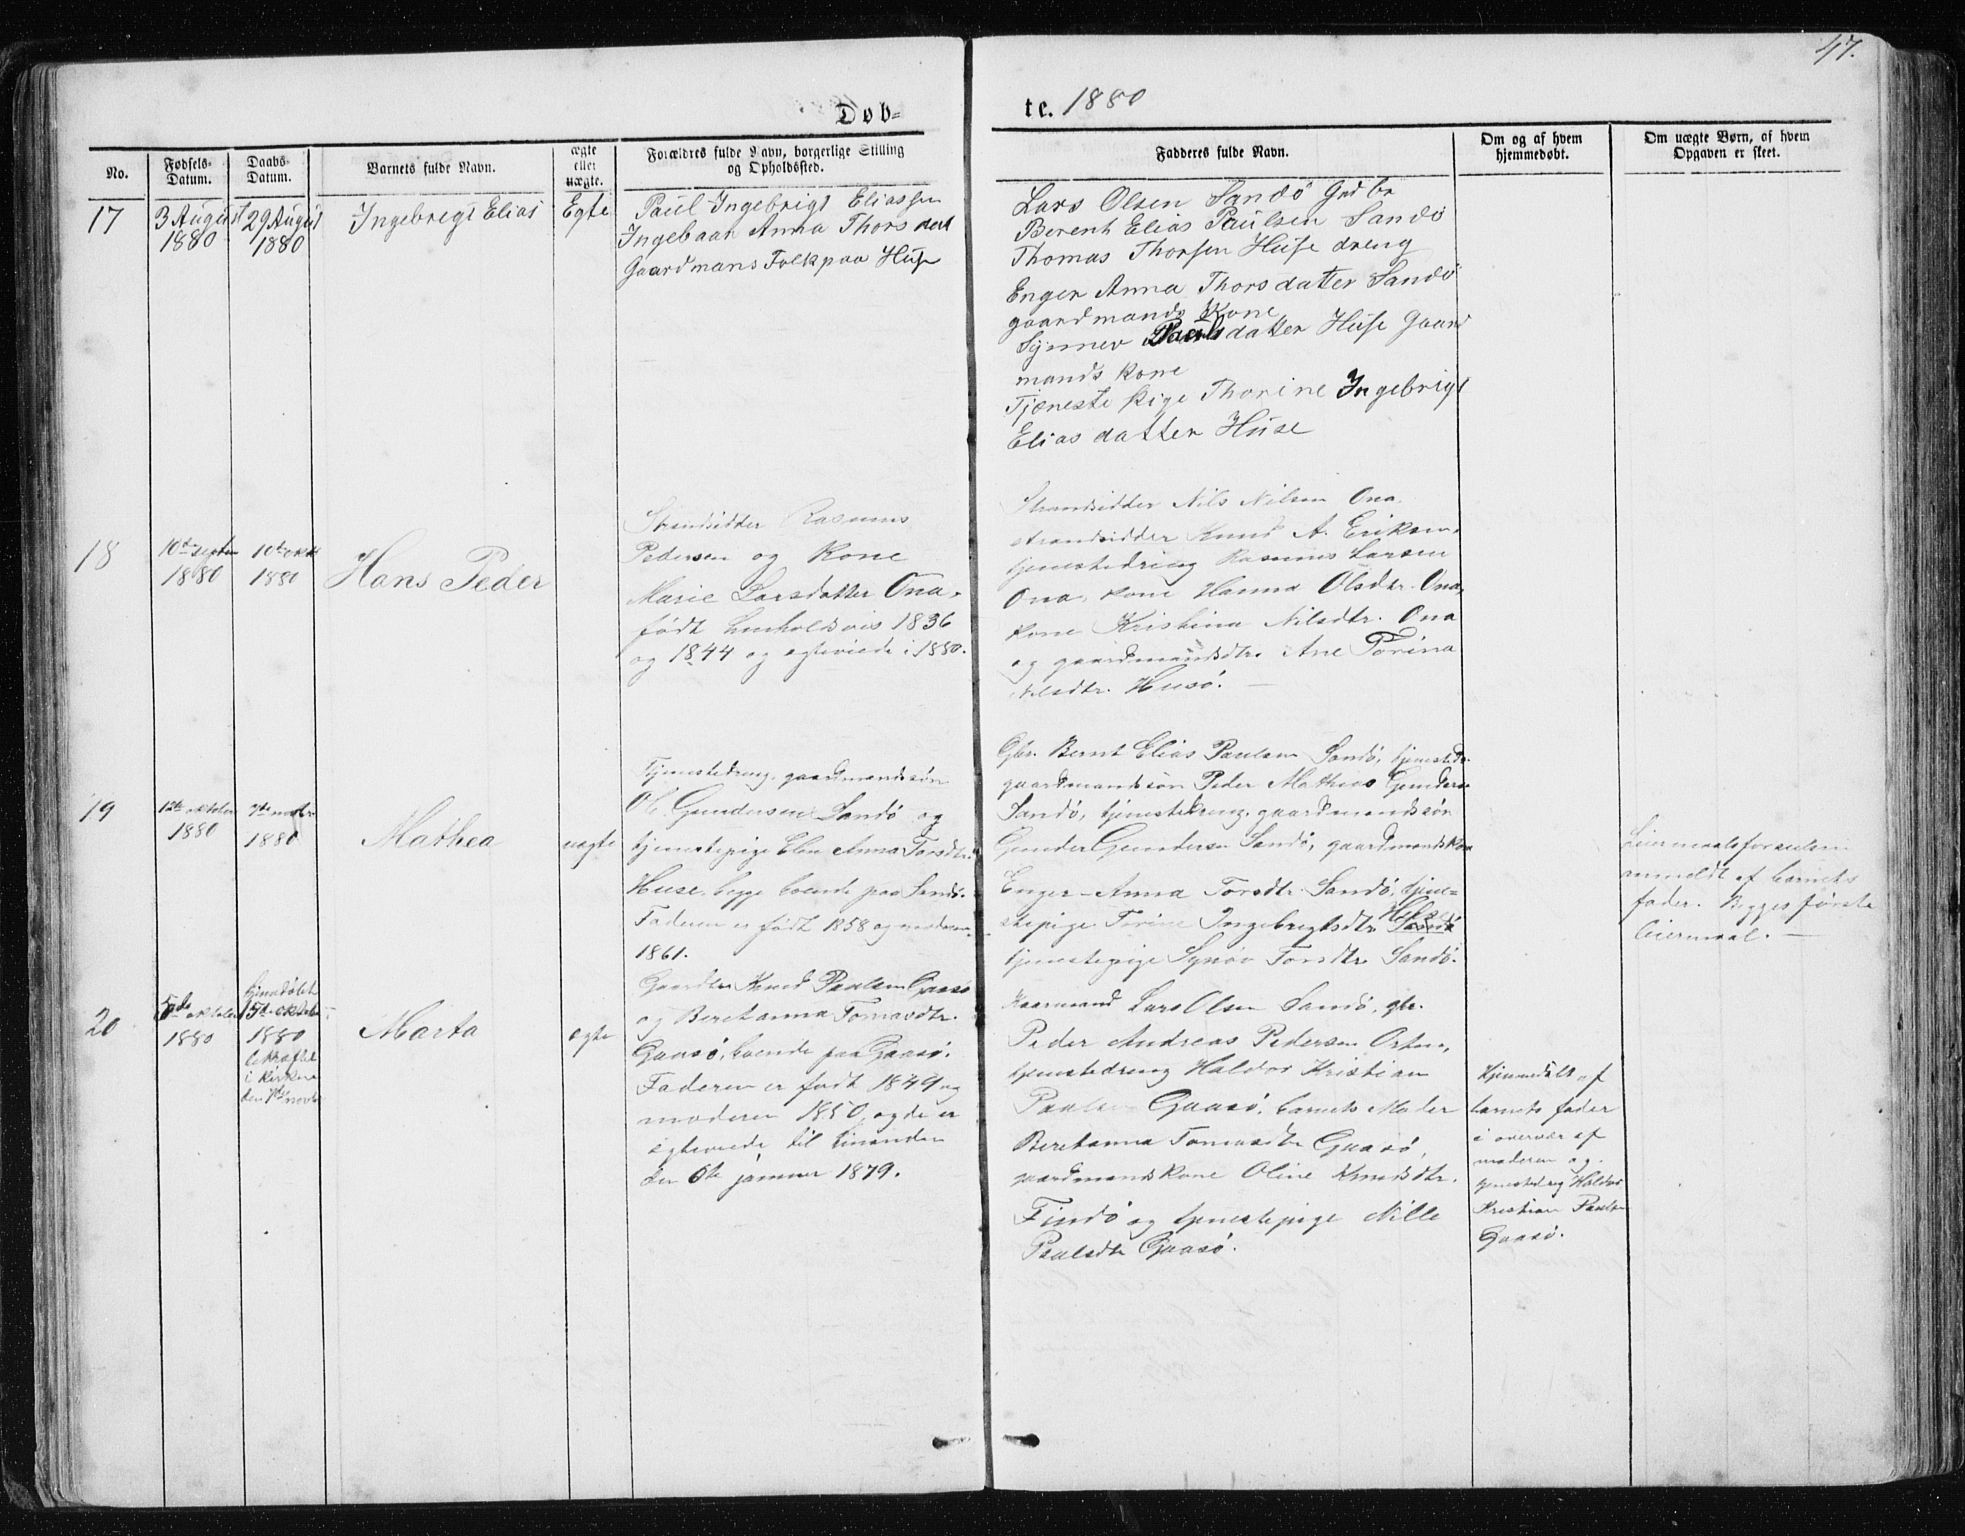 47.
Døb=
te. 1880
No.
Fødsels-
Datum.
Daabs-
Datum.
Barnets fulde Navn.
ægte
eller
uægte.
Forældres fulde Navn, borgerlige Stilling
og Opholdssted.
Fadderes fulde Navn.
Om og af hvem
hjemmedøbt.
Om uægte Børn, af hvem
Opgaven er skeet.
17
3 August
1880
29 August
1880
Ingebrigt Elias
Egte
Paul Ingebrigt Eliassen
Ingebaar Anna Thors datt
Gaardmans Folk paa Huse
Lars Olsen Sandö Grdbr
Berent Elias Paulsen Sandö
Thomas Thorsen Huse dreng
Enger Anna Thorsdatter Sandö
gaardmands Kone
Synnev Paulsdatter Huse Gaard
mands kone
Tjæneste pige Thorine Ingebrigt
Elias datter Huse
18
10de septbr
1880
10de oktbr
1880
Hans Peder
Strandsidder Rasmus
Pedersen og Kone
Marie Larsdatter Ona,
født henholdsvis 1836
og 1844 og egteviede i 1880.
Strandsidder Nils Nilsen Ona
strandsidder Knud A. Eriksen,
tjenestedreng Rasmus Larsen
Ona, kone Hanna Olsdtr. Ona,
kone Kristina Nilsdtr. Ona
og gaardmandsdtr. Ane Torina
Nilsdtr. Husö. —
19
12te oktober
1880
7de novbr
1880
Mathea
uegte
Tjenestedreng, gaardmandssön
Ol. Gundersen Sandö og
tjenestepige Elen Anna Torsdtr.
Huse, begge boende paa Sandö.
Faderen er født 1858 og moderen
1861.
Gbr. Bernt Elias Paulsen Sandö, tjenestedr.
gaardmandssön Peder Mathias Gunders
Sandö, tjenestedreng, gaardmandssön
Gunder Gundersen Sandö, gaardmandskone
Enger-Anna Torsdtr. Sandö, tjene-
stepige Torine Ingebrigtsdtr. Huse Sandö
tjenestepige Synöv Torsdtr. Sandö.
Leiermaalsforseelsen
anmeldt af barnets
fader. Begges første
leiermaal. —
20
5de oktober
1880
hjemdöbt
15d. oktober
1880
bekræftet
i kirken
den 7de novbr
Marta
egte
Gaardbr. Knud Paulsen Gaasö
og Beretanna Tomasdtr.
Gaasö, boende paa Gaasö.
Faderen er født 1849 og
moderen 1850, og de er
egteviede til hinanden
den 6te januar 1879.
Kaarmand Lars Olsen Sandö, gbr.
Peder Andreas Pedersen Orten,
tjenestedreng Haldor Kristian
Paulsen Gaasö, barnets Moder
Beretanna Tomasdtr Gaasö,
gaardmandskone Oline Knudsdtr.
Findö og tjenestepige Nille
Paulsdtr Gaasö.
Hjemmedöbt af
barnets fader
i overvær af
moderen og
tjenestedreng Haldor
Kristian Paulsen
Gaasö.